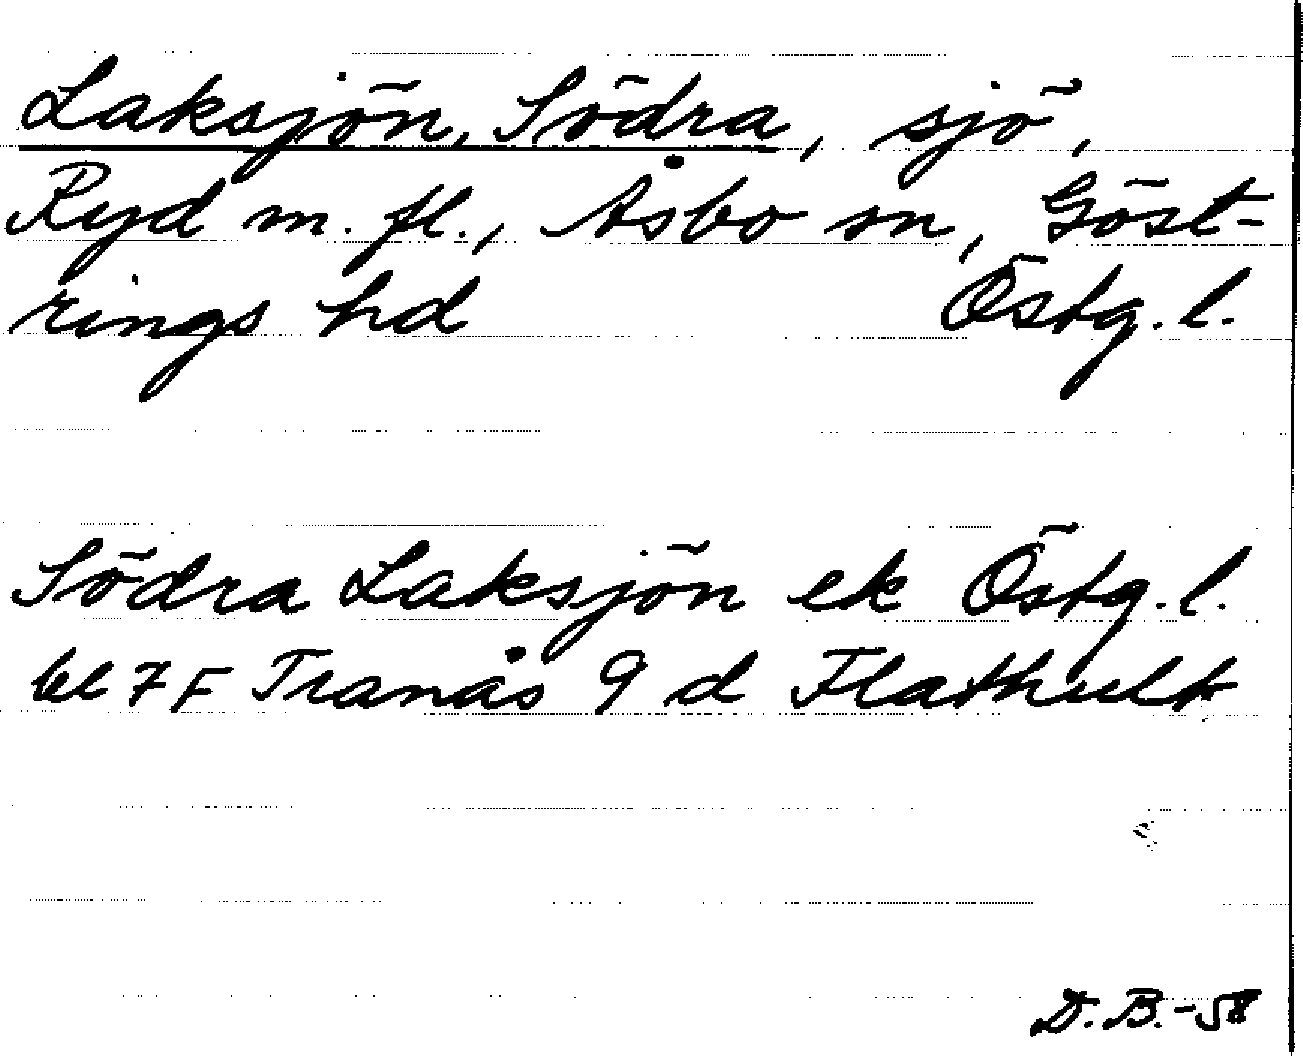 Laksjön, Södra, sjö,
Ryd m. fl., Åsbo sn, Göst-
rings hd Östg. l.
Södra Laksjön ek Östg. l.
bl 7 F Tranås 9 d Flathult
D. B. - 58